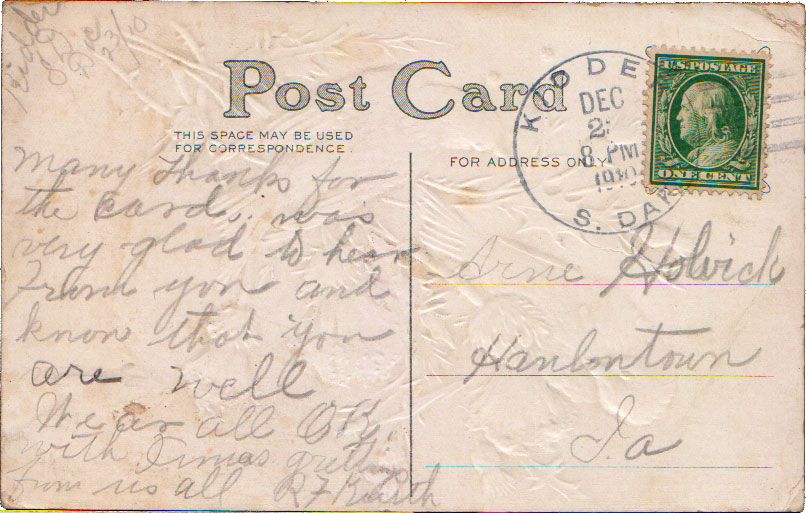 Kidder
S D
Dec
23/10
Post Card
THIS SPACE MAY BE USED
FOR CORRESPONDENCE.
FOR ADDRESS ONLY
KIDDE
DEC
2
8 PM
1910
S. DAK
U.S. POSTAGE
ONE CENT
Many thanks for
the card, was
very glad to hear
From you and
know that you
are well
We ar all OK,
with Xmas
from us all R F
Arne Holvick
Hanlontown
Ia